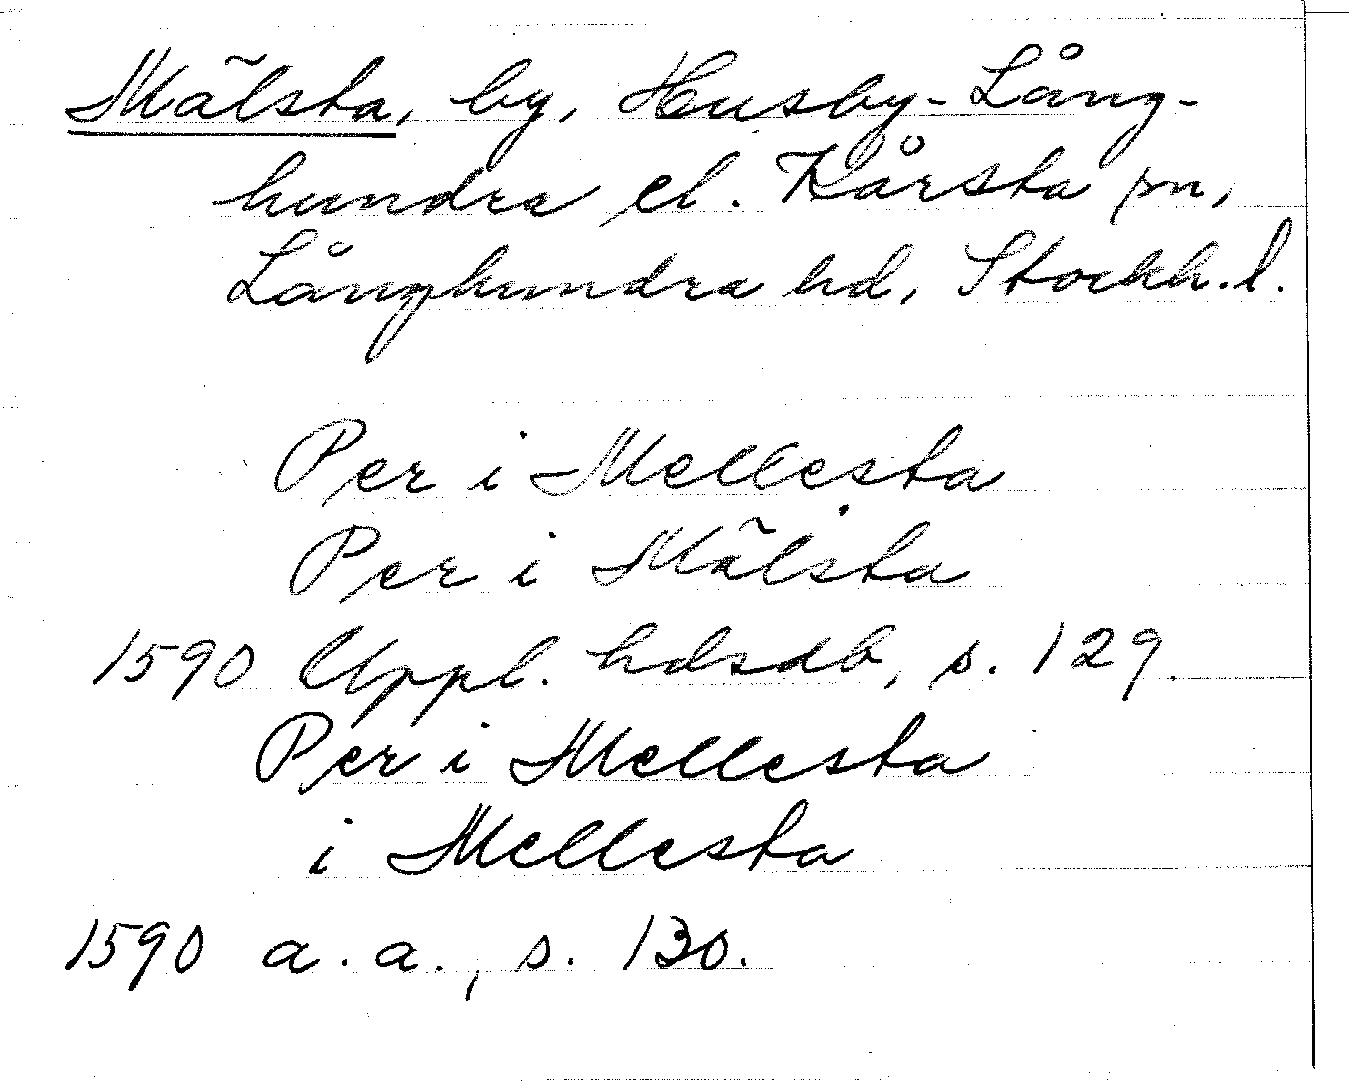 Mälsta, by, Husby-Lång-
hundra el. Kårsta sn,
Långhundra hd, Stockh. l.
Per i Mellesta
Per i Mälsta
1590 Uppl. hdsdb, s. 129.
Per i Mellesta
i Mellesta
1590 a. a., s. 130.